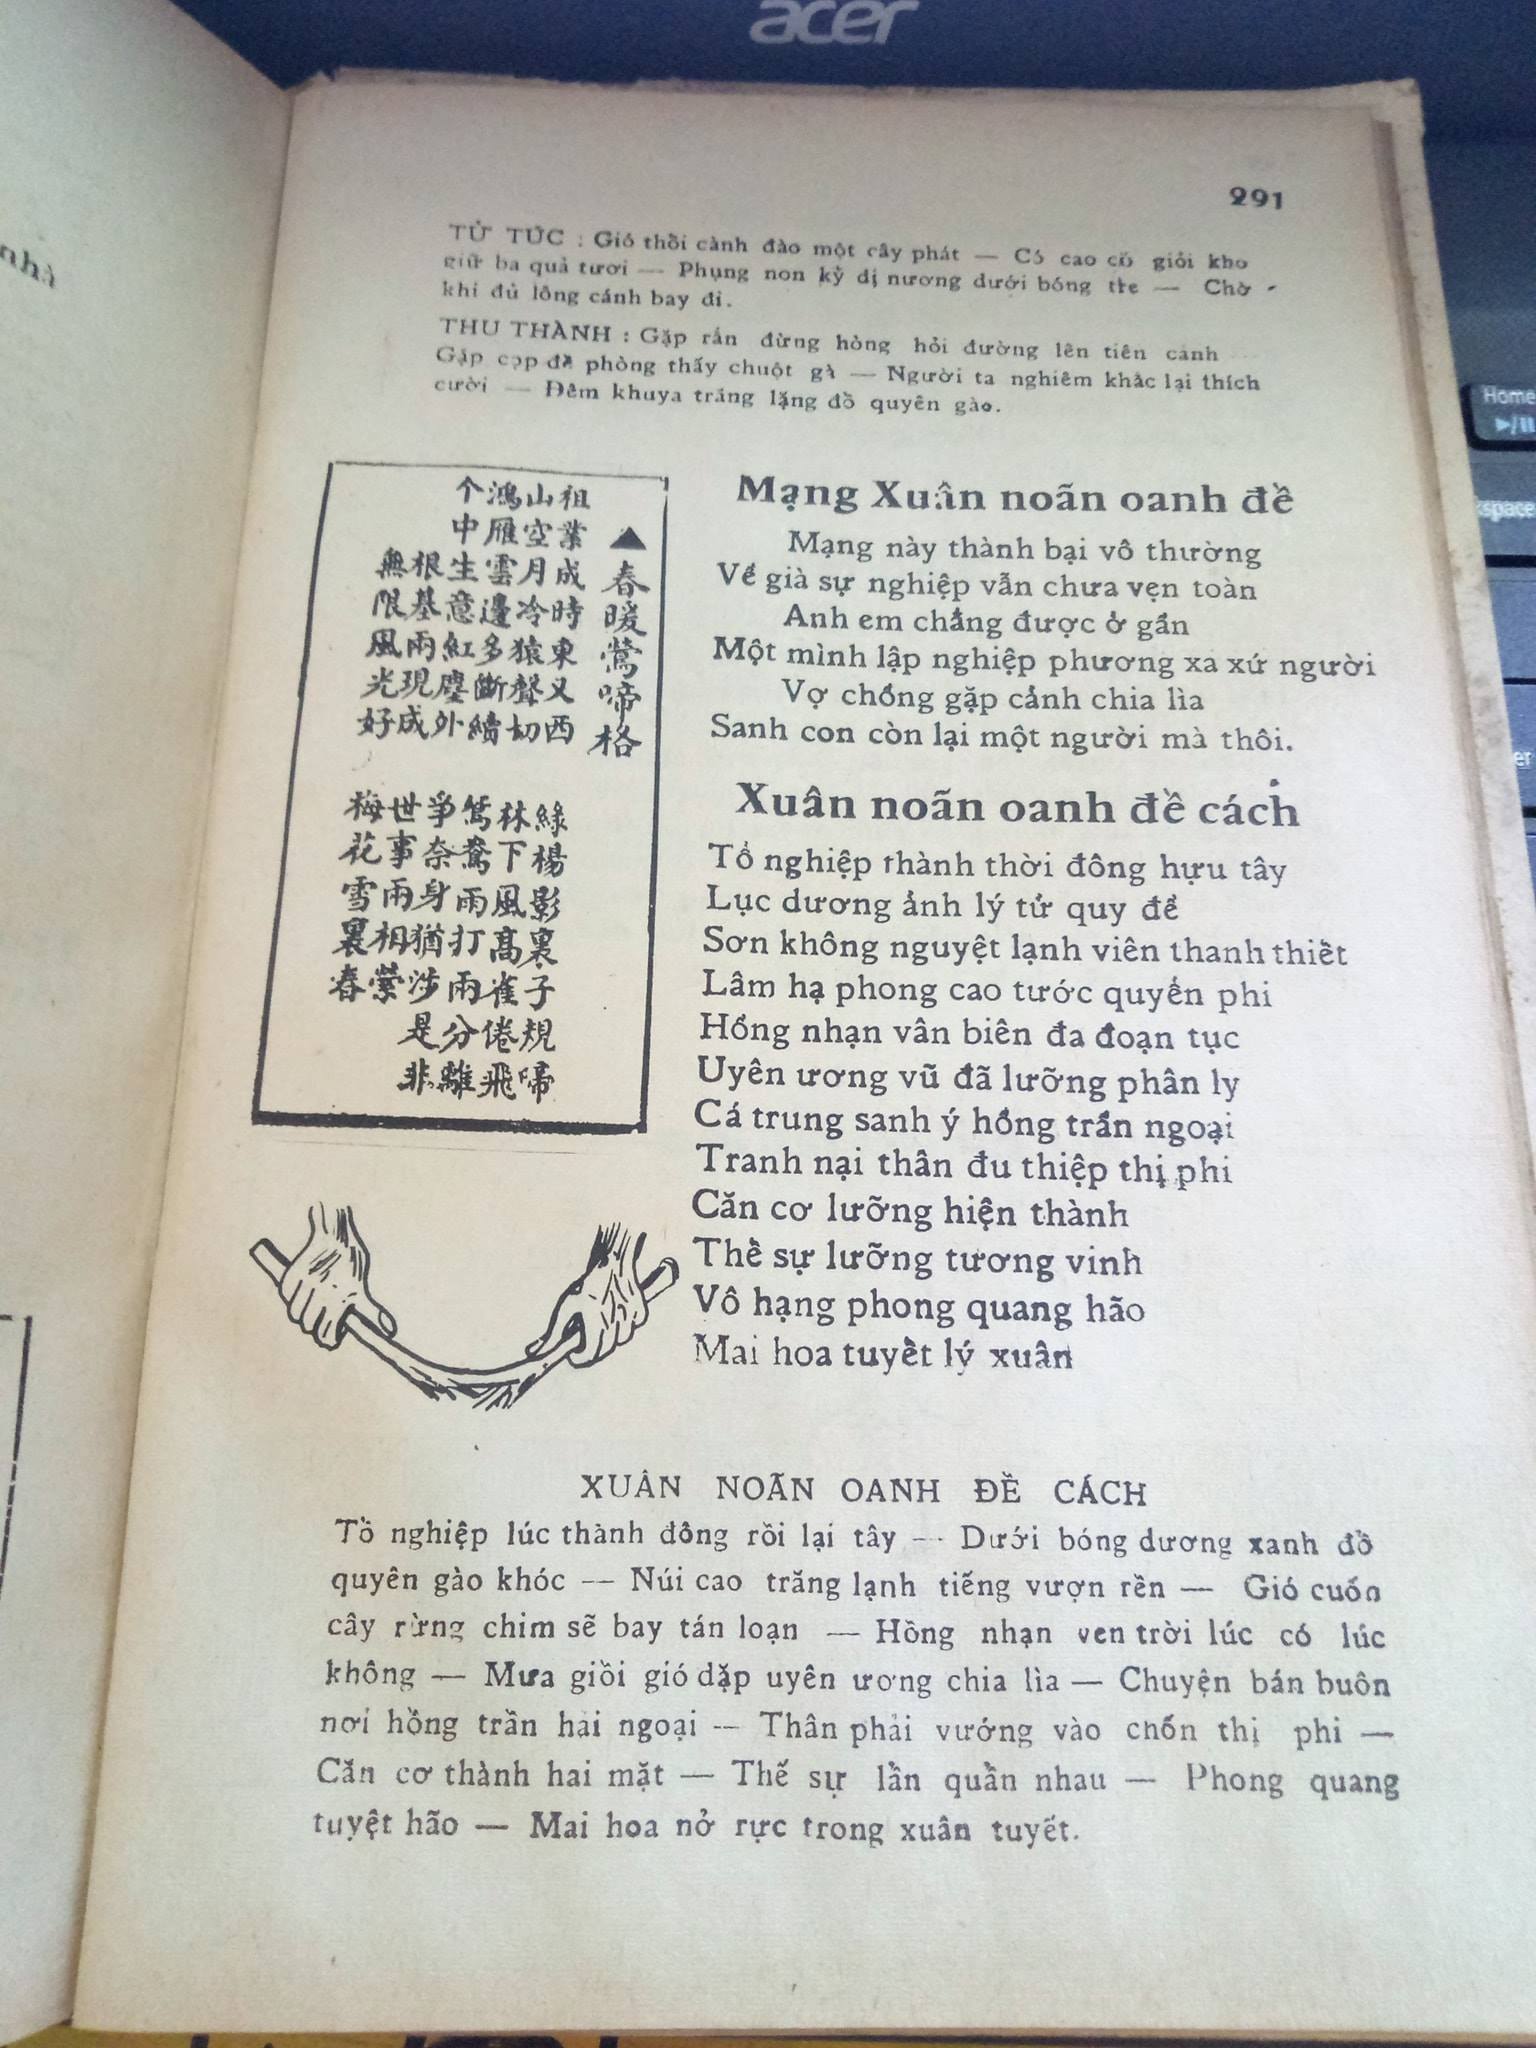 acer
nhà
291
TỬ TỨC : Gió thồi cành đào một cây phát — Có cao cõ giỏi kho
giữ ba quả tươi — Phụng non kỷ dị nương dưới bóng tre — Chờ
khi đủ lông cánh bay đi.
THU THÀNH : Gặp rắn đừng hòng hỏi đường lên tiên cảnh
Gặp cọp đề phòng thấy chuột gà — Người ta nghiêm khắc lại thích
cười — Đêm khuya trăng lặng đồ quyên gào.
▲春暖鶯啼格
祖業成時東又西
山空月冷猿聲切
鴻雁雲邊多斷續
个中生意紅塵外
根基兩現成
無限風光好
綠楊影裏子規啼
林下風高雀倦飛
鴛鴦雨打兩分離
爭奈身猶涉是非
世事兩相縈
梅花雪裏春
Mạng Xuân noãn oanh đề
Mạng này thành bại vô thường
Về già sự nghiệp vẫn chưa vẹn toàn
Anh em chẳng được ở gần
Một mình lập nghiệp phương xa xứ người
Vợ chồng gặp cảnh chia lìa
Sanh con còn lại một người mà thôi.
Xuân noãn oanh đề cách
Tổ nghiệp thành thời đông hựu tây
Lục dương ảnh lý tử quy đề
Sơn không nguyệt lạnh viên thanh thiết
Lâm hạ phong cao tước quyển phi
Hồng nhạn vân biên đa đoạn tục
Uyên ương vũ đã lưỡng phân ly
Cá trung sanh ý hồng trần ngoại
Tranh nại thân đu thiệp thị phi
Căn cơ lưỡng hiện thành
Thề sự lưỡng tương vinh
Vô hạng phong quang hão
Mai hoa tuyềt lý xuân
XUÂN NOÃN OANH ĐỀ CÁCH
Tồ nghiệp lúc thành đông rồi lại tây — Dưới bóng dương xanh đồ
quyên gào khóc — Núi cao trăng lạnh tiếng vượn rền — Gió cuốn
cây rừng chim sẽ bay tán loạn — Hồng nhạn ven trời lúc có lúc
không — Mưa giồi gió dặp uyên ương chia lìa — Chuyện bán buôn
nơi hồng trần hải ngoại — Thân phải vướng vào chốn thị phi —
Căn cơ thành hai mặt — Thế sự lần quần nhau — Phong quang
tuyệt hão — Mai hoa nở rực trong xuân tuyết.
Home